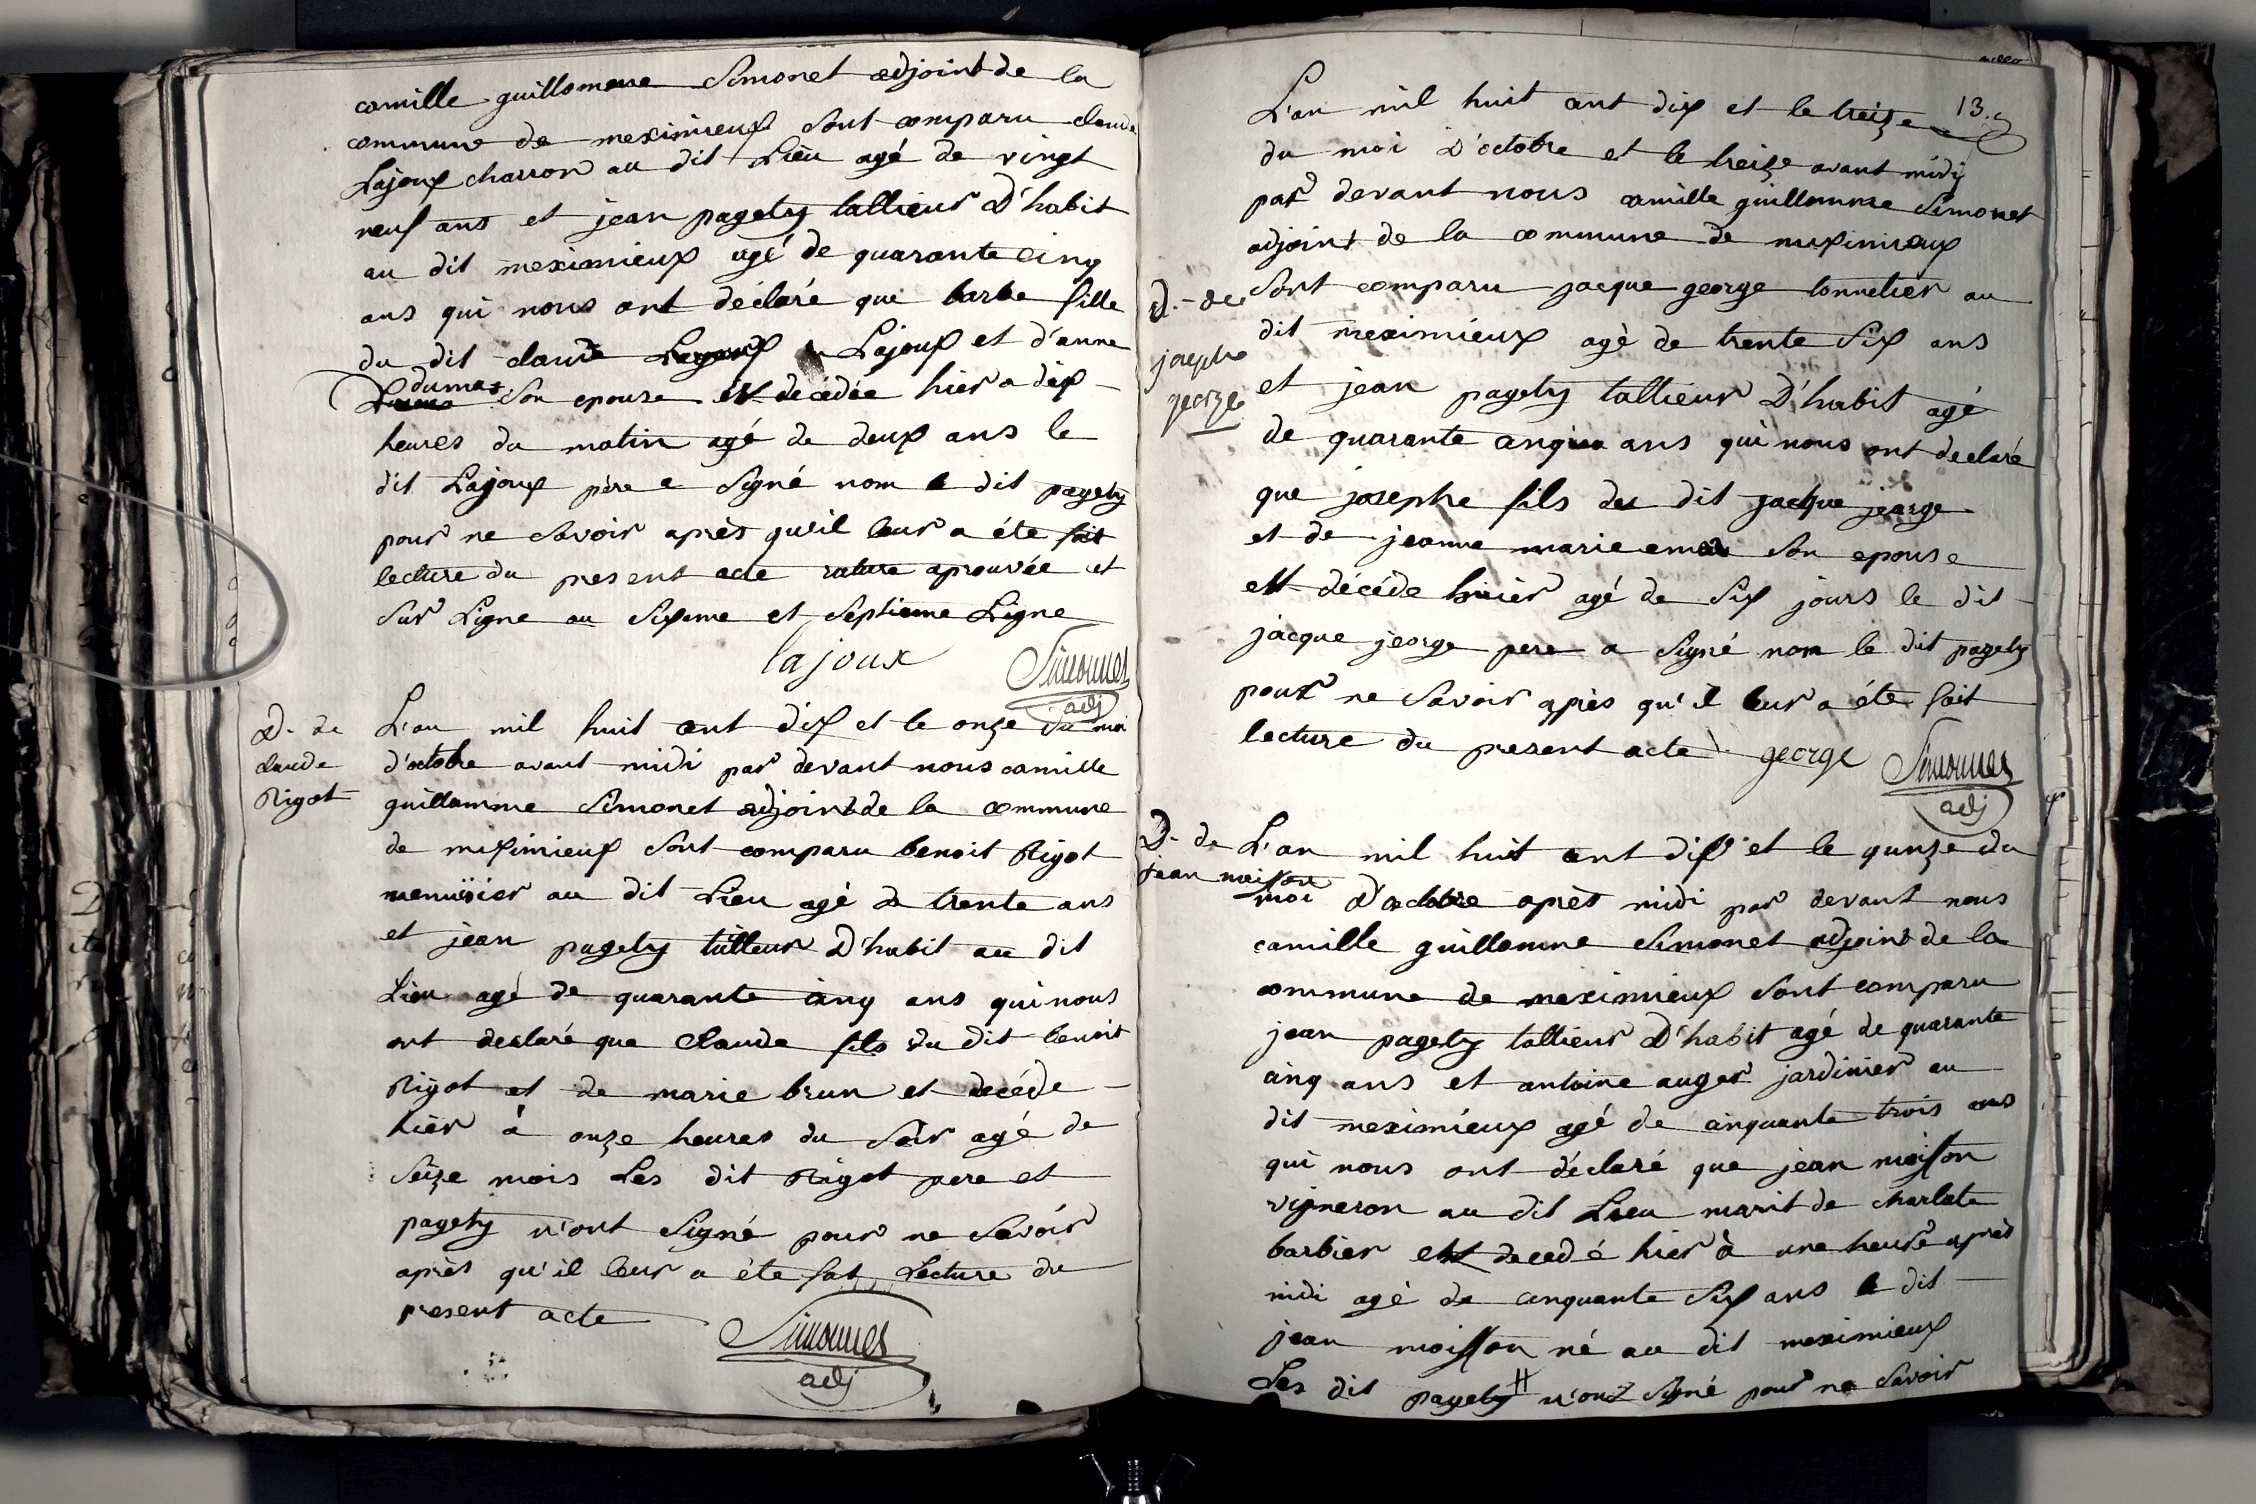 camille guillomme Simonet adjoint de la
commune de meximieux sont comparu claude
Lajoux charron au dit Lieu agé de vingt
neuf ans et jean pagety tallieur D'habit
au dit meximieux agé de quarante cinq
ans qui nous ont déclaré que barbe fille
du dit claude Lajoux et d'anne
dumas son epouse est decédée hier a dix
heures du matin agé de deux ans le
dit Lajoux père a signé nom le dit pagety
pour ne savoir après qu'il leur a éte fait
lecture du present acte rature aprouvée et
sur Ligne au sixeme et septieme Ligne
lajoux Simonet
adj
D. de
claude
Rigot
L'an mil huit cent dix et le onze du moi
d'octobre avant midi par devant nous camille
guillamme Simonet adjoint de la commune
de meximieux sont comparu benoit Rigot
menuisier au dit Lieu agé de trente ans
et jean pagety tallieur D'habit au dit
Lieu agé de quarante cinq ans qui nous
ont declaré que Claude fils du dit benoit
Rigot et de marie brun et decéde
hier à onze heures du soir agé de
seize mois Les dit Rigot pere et
pagety n'ont signé pour ne savoir
après qu'il leur a éte fait Lecture du
present acte Simonet
adj
13.
L'an mil huit cent dix et le treize
du moi D'octobre et le treize avant midy
par devant nous camille guillomme Simonet
adjoint de la commune de meximieux
D. de
josephe
george
sont comparu jacque george tonnelier au
dit meximieux agé de trente six ans
et jean pagety tallieur D'habit agé
de quarante cinq ans qui nous ont declaré
que josephe fils du dit jacque jeorge
et de jeanne marie son epouse
est décéde hier agé de six jours le dit
jacque jeorge pere a signé nom le dit pagety
pour ne savoir après qu'il leur a éte fait
lecture du present acte george Simonet
adj
D. de
jean moisson
L'an mil huit cent dix et le quinze du
moi d'octobre après midi par devant nous
camille guillomme Simonet adjoint de la
commune de meximieux sont comparu
jean pagety tallieur D'habit agé de quarante
cinq ans et antoine auger jardinier au
dit meximieux agé de cinquante trois ans
qui nous ont déclaré que jean moisson
vigneron au dit Lieu marit de charlote
barbier est decedé hier à une heure après
midi agé de cinquante six ans le dit
jean moisson né au dit meximieux
Les dit pagety # n'ont signé pour ne savoir